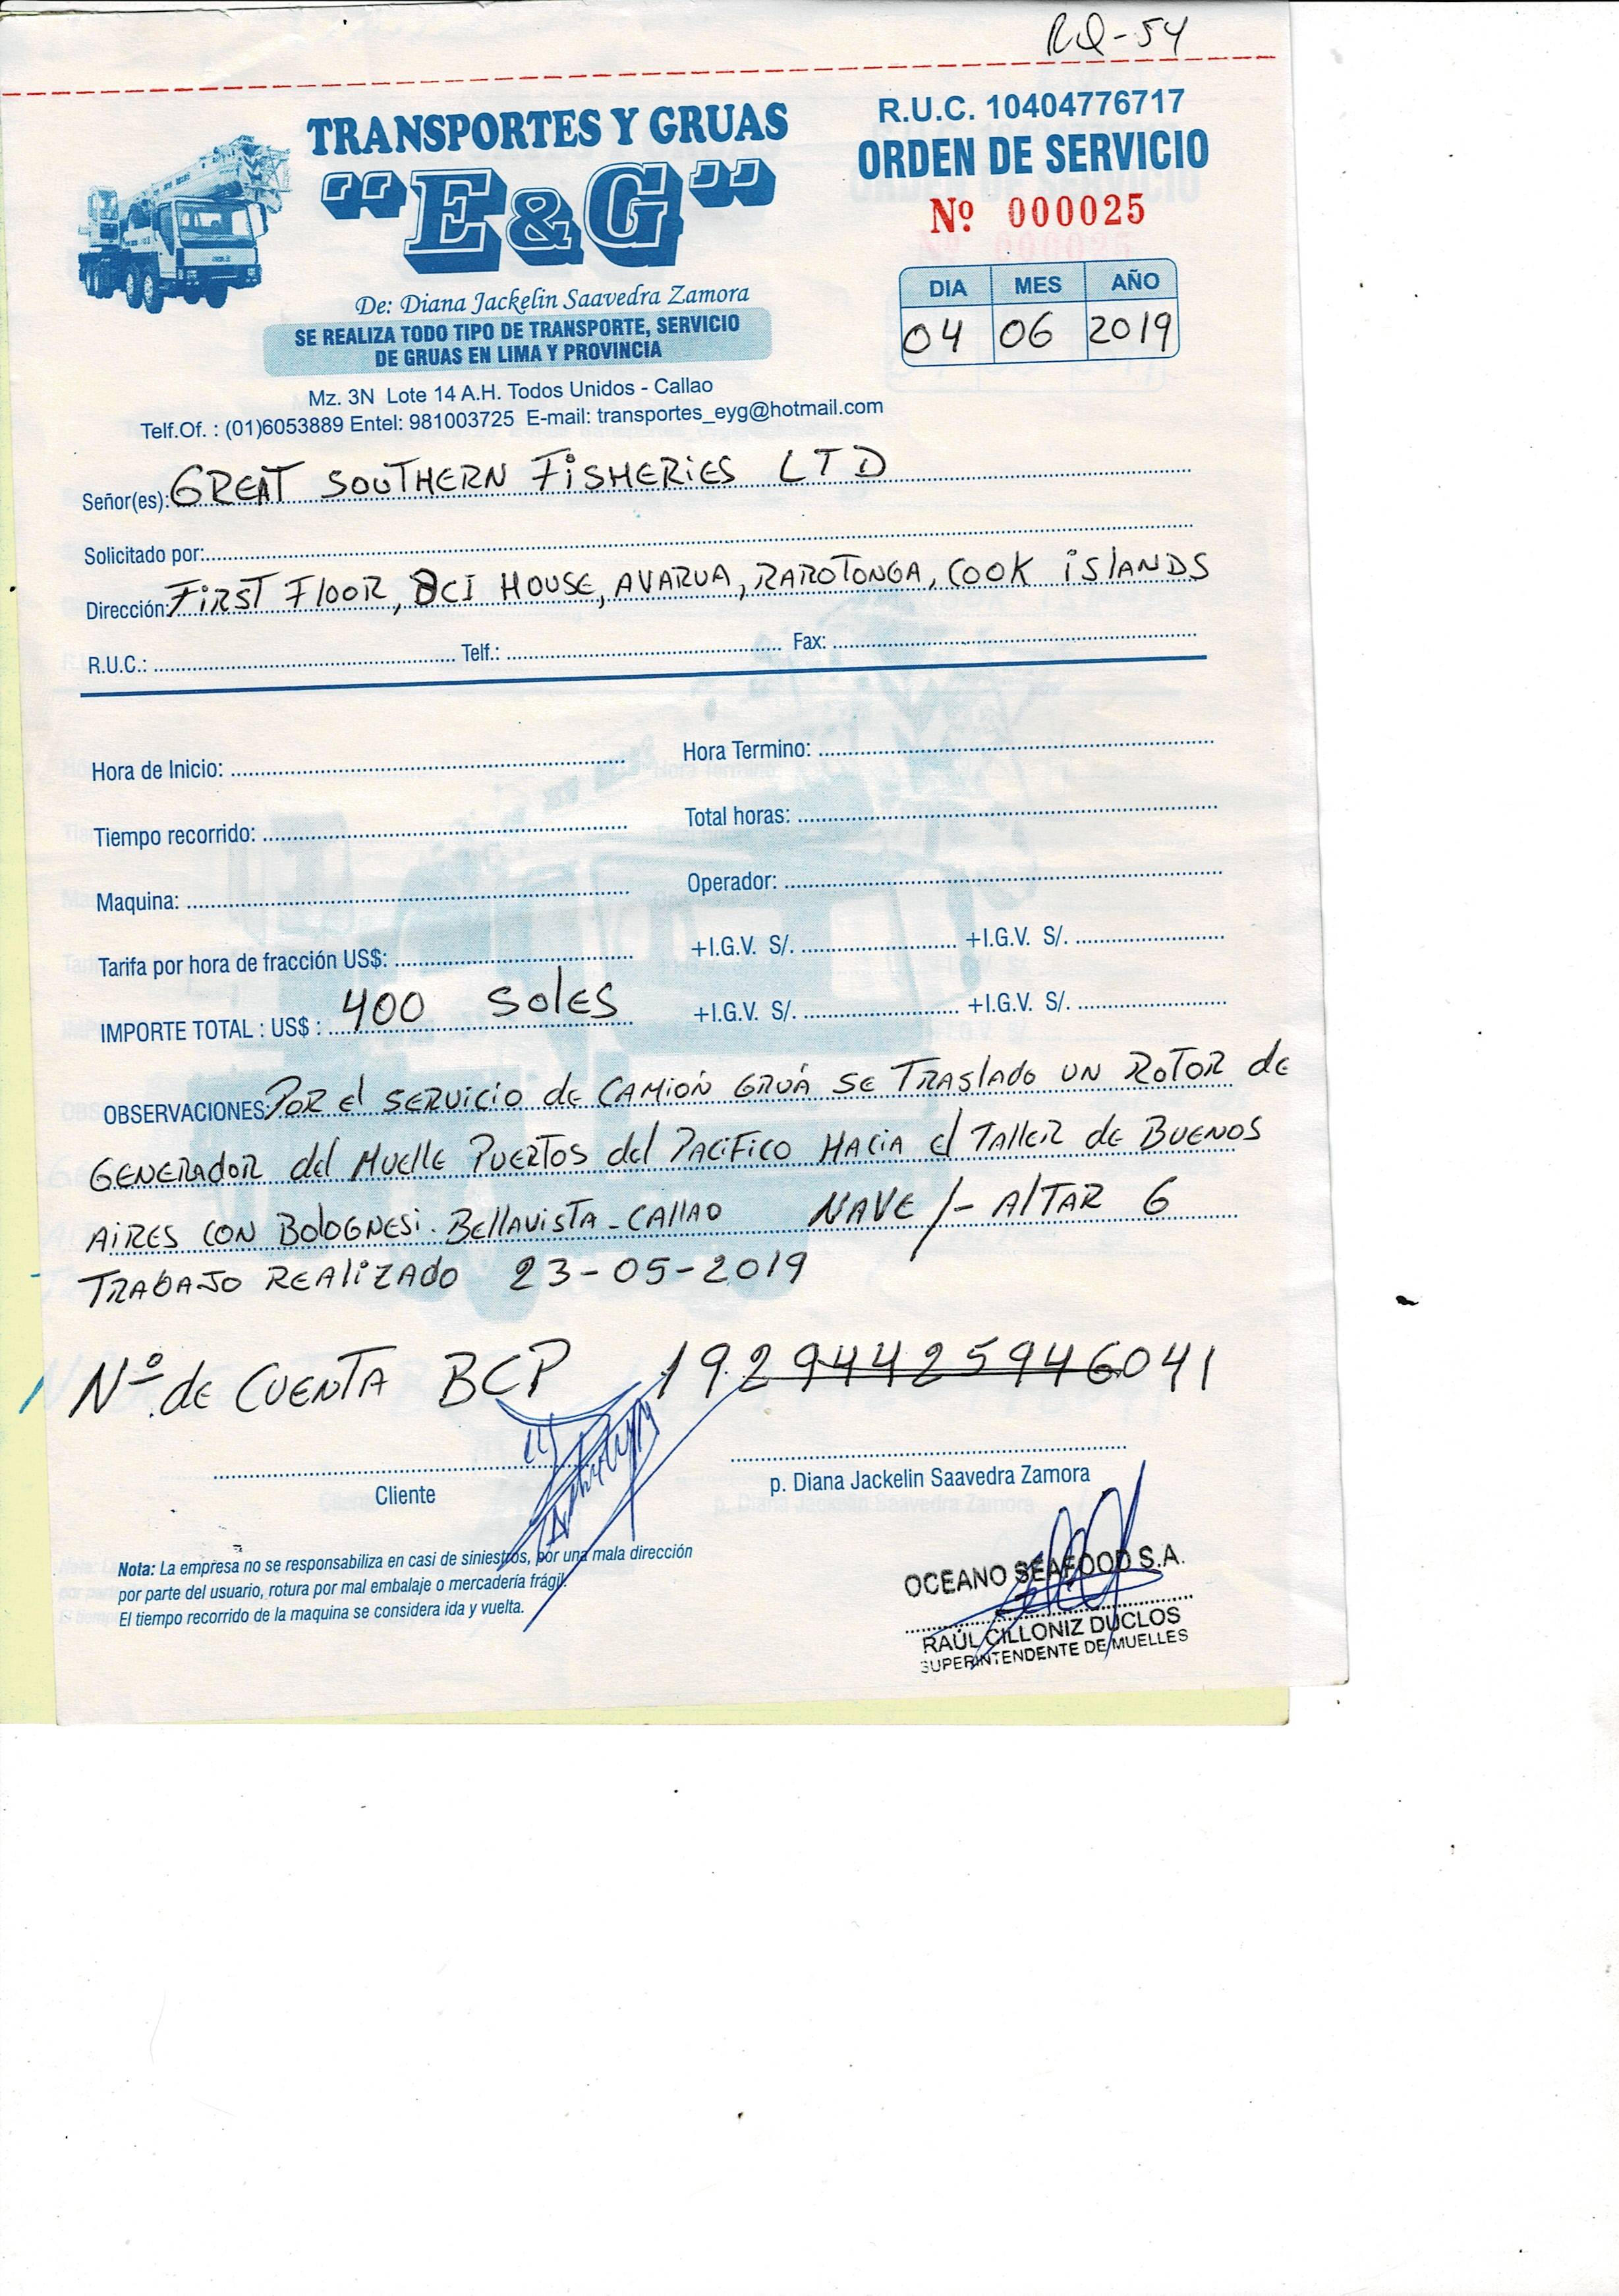 RQ-54
TRANSPORTES Y GRUAS
"E&G"
De: Diana Jackelin Saavedra Zamora
SE REALIZA TODO TIPO DE TRANSPORTE, SERVICIO
DE GRUAS EN LIMA Y PROVINCIA
Mz. 3N Lote 14 A.H. Todos Unidos - Callao
Telf.Of. : (01)6053889 Entel: 981003725 E-mail: transportes_eyg@hotmail.com
R.U.C. 10404776717
ORDEN DE SERVICIO
Nº 000025
DIA MES AÑO
04 06 2019
Señor(es): GREAT SOUTHERN FISHERIES LTD
Solicitado por:
Dirección: FIRST FLOOR, BCI HOUSE, AVARUA, RAROTONGA, COOK ISLANDS
R.U.C.: Telf.: Fax:
Hora de Inicio: Hora Termino:
Tiempo recorrido: Total horas:
Maquina: Operador:
Tarifa por hora de fracción US$: +I.G.V. S/. +I.G.V. S/.
IMPORTE TOTAL : US$ : 400 SOLES +I.G.V. S/. +I.G.V. S/.
OBSERVACIONES: POR EL SERVICIO DE CAMIÓN GRUA SE TRASLADO UN ROTOR DE
GENERADOR DEL MUELLE PUERTOS DEL PACIFICO HACIA EL TALLER DE BUENOS
AIRES CON BOLOGNESI. BELLAVISTA - CALLAO NAVE /- ALTAR 6
TRABAJO REALIZADO 23-05-2019
Nº. DE CUENTA BCP 19294425946041
Cliente
p. Diana Jackelin Saavedra Zamora
Nota: La empresa no se responsabiliza en casi de siniestros, por una mala dirección
por parte del usuario, rotura por mal embalaje o mercadería frágil.
El tiempo recorrido de la maquina se considera ida y vuelta.
OCEANO SEAFOOD S.A.
RAÚL CILLONIZ DUCLOS
SUPERINTENDENTE DE MUELLES